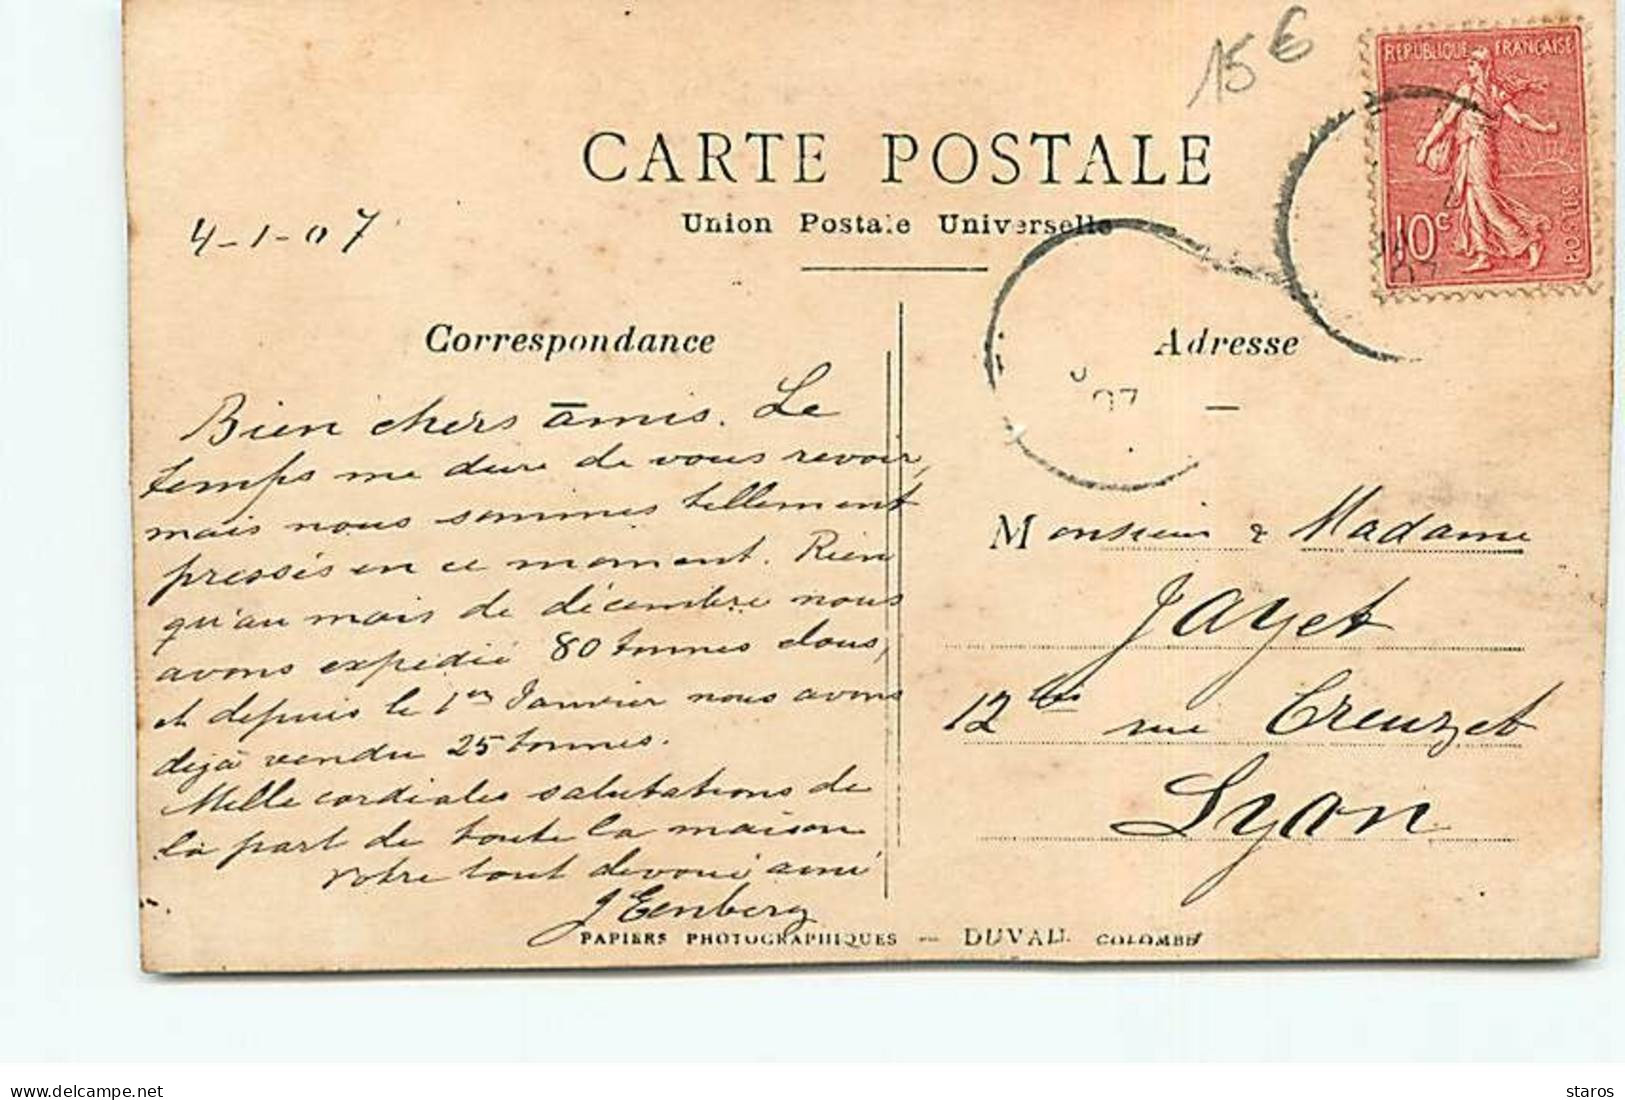 15 €
REPUBLIQUE FRANÇAISE
10c
POSTES
CARTE POSTALE
Union Postale Universelle
4-1-07
07
07
Correspondance
Adresse
Bien chers amis. Le
temps me dure de vous revoir,
mais nous sommes tellement
pressés en ce moment. Rien
qu'au mois de décembre nous
avons expédié 80 tonnes d'ous,
et depuis le 1er Janvier nous avons
déjà vendu 25 tonnes.
Mille cordiales salutations de
la part de toute la maison
votre tout devoué ami
Monsieur & Madame
Jayet
12 bis rue Creuzet
Lyon
PAPIERS PHOTOGRAPHIQUES — DUVAU COLOMBES
delcampe.net
staros